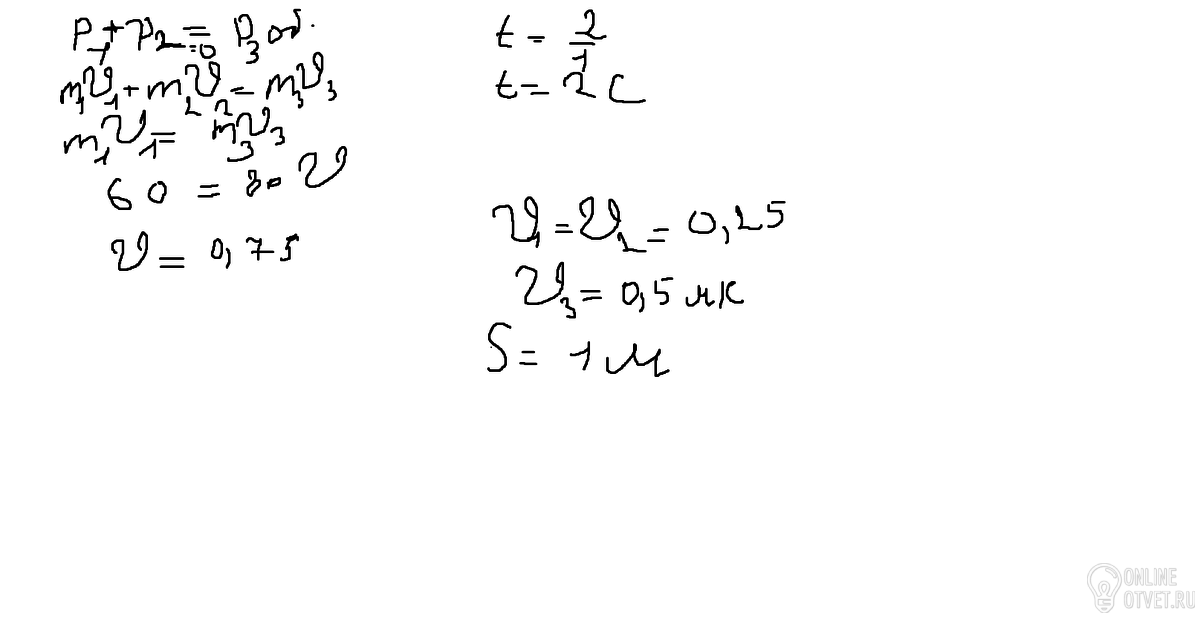 P₁+P₂=0 = P₃ об.
m₁v₁+m₂v₂=m₃v₃
m₁v₁= m₃v₃
60 = 80 v
v = 0,75
t = 2/1
t = 2 с
v₁=v₂= 0,25
v₃= 0,5 мк
S = 1м
ONLINE
OTVET.RU